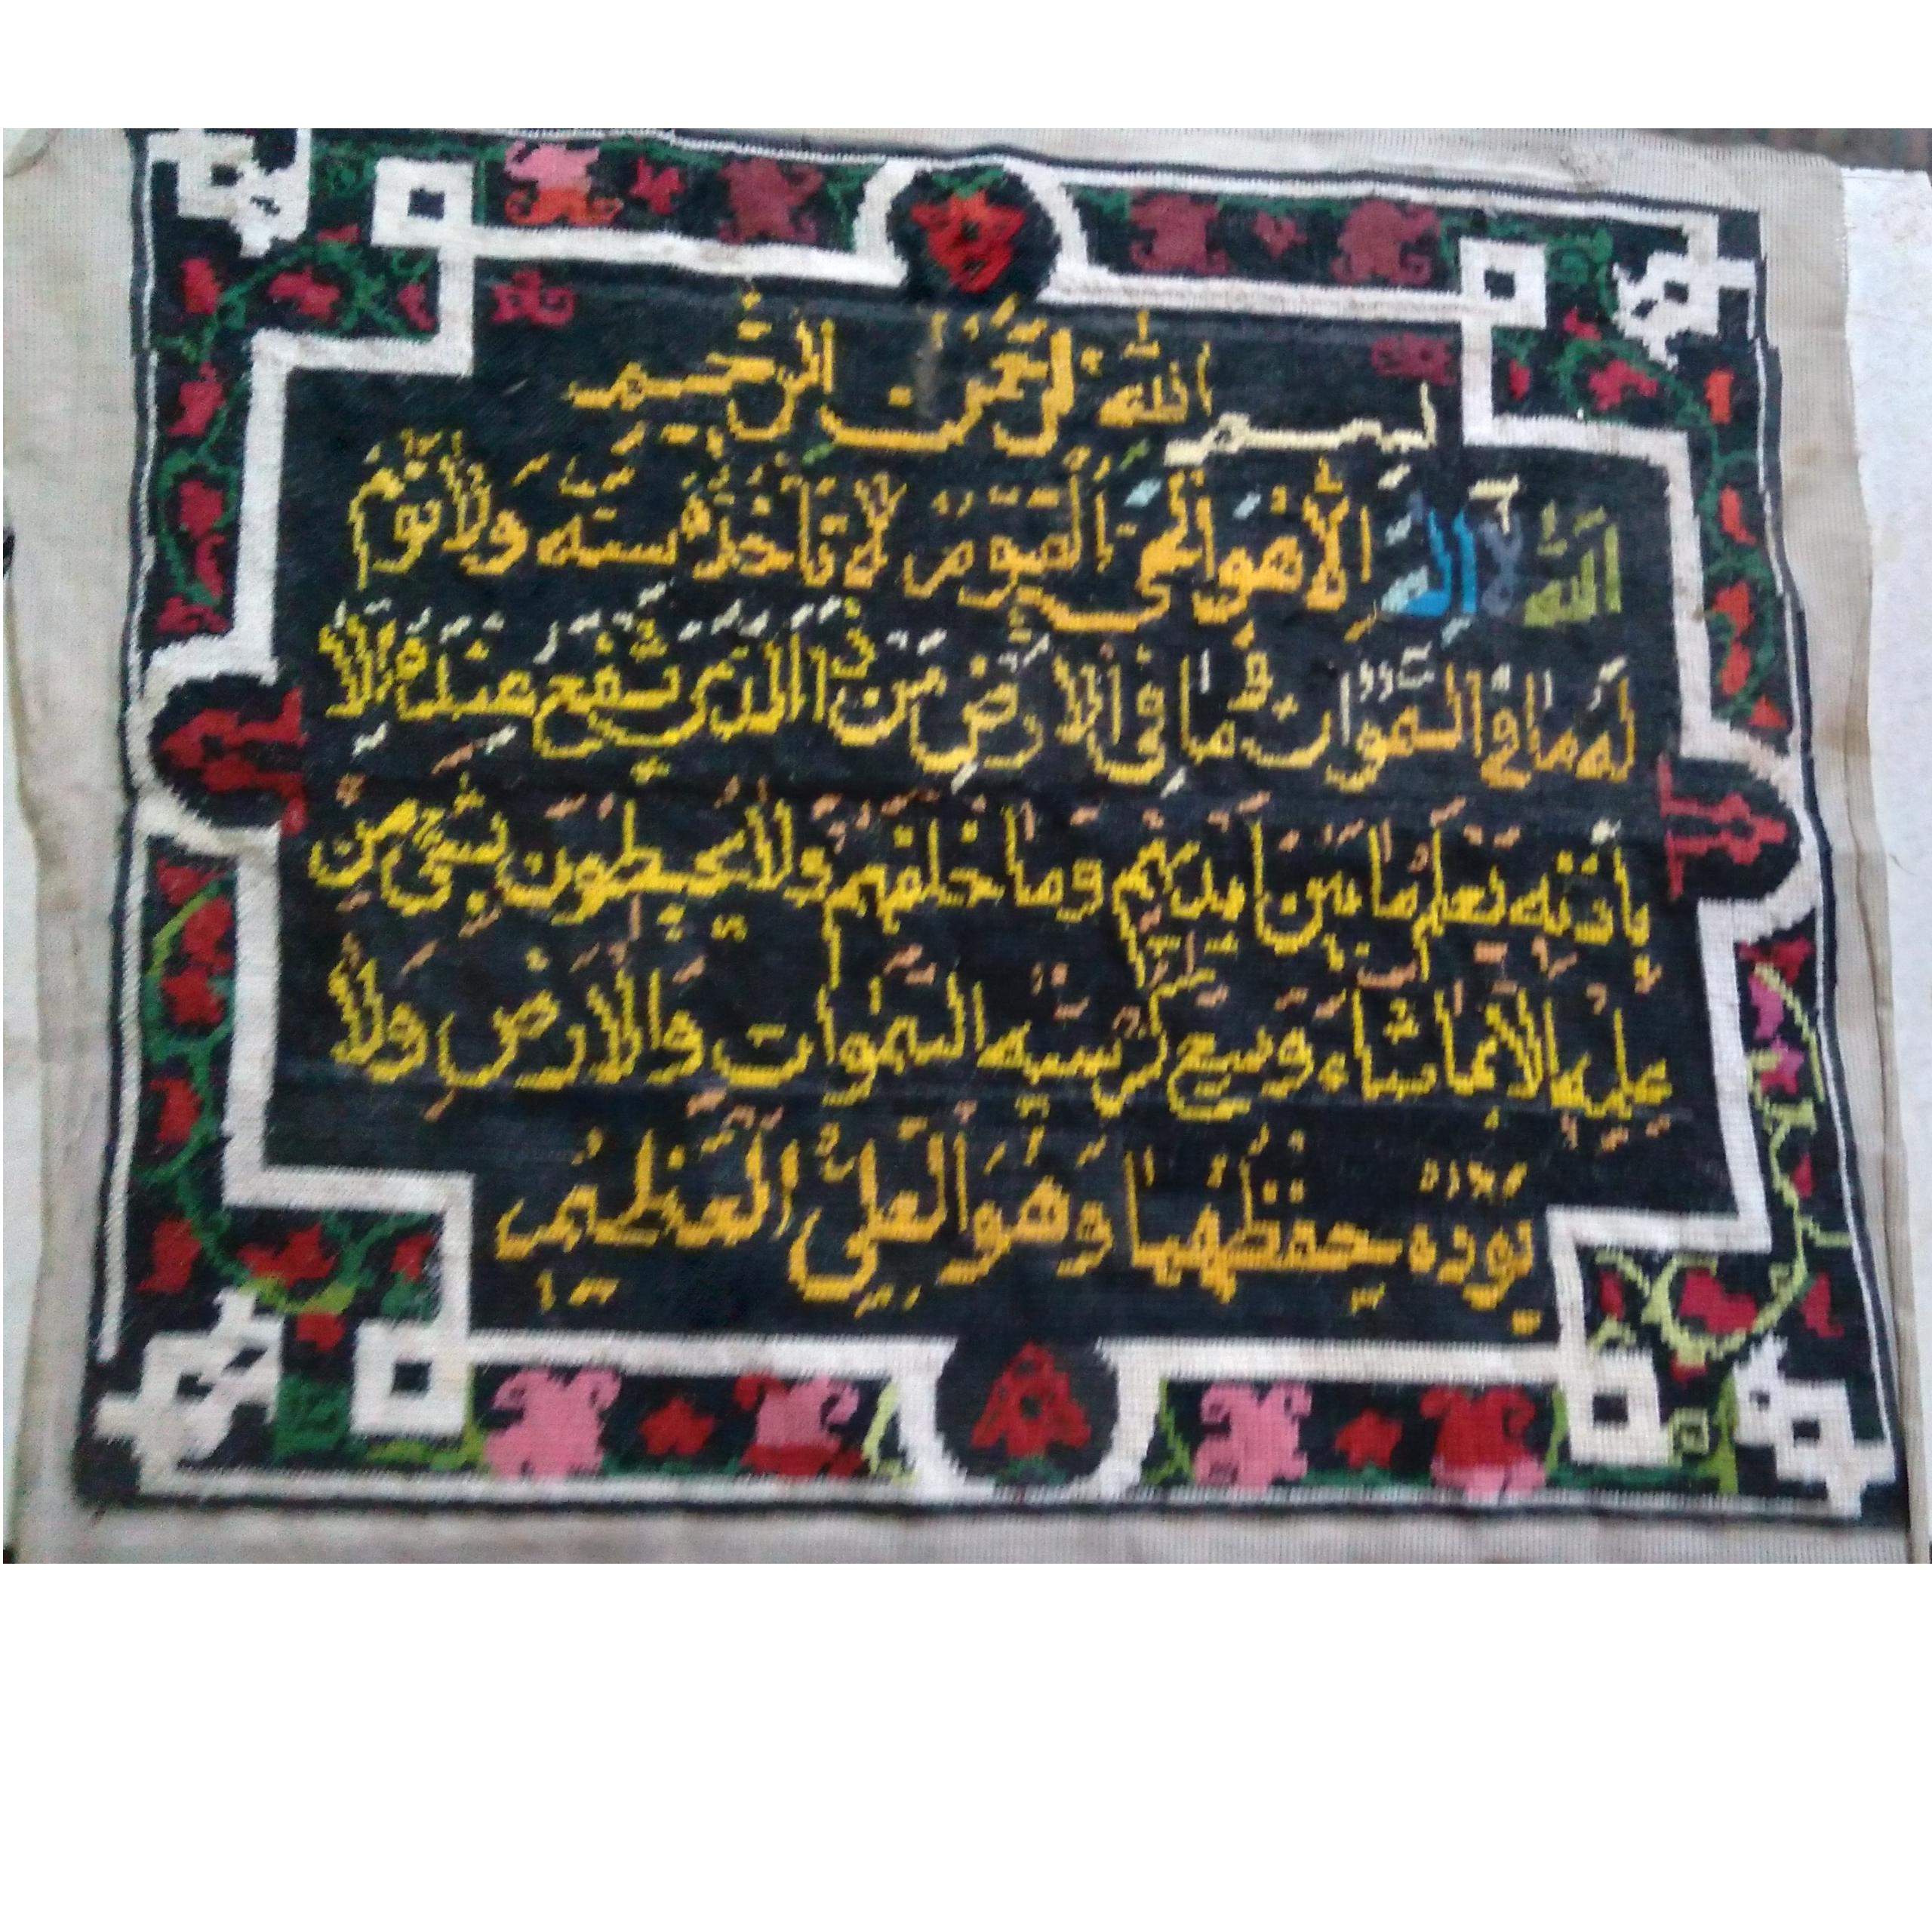 بسم الله الرحمن الرحيم
الله لا اله الا هو الحي القيوم لا تاخذه سنه ولا نوم
له ما في السموات وما في الارض من ذا الذي يشفع عنده الا
باذنه يعلم ما بين ايديهم وما خلفهم ولا يحيطون بشيء من
علمه الا بما شاء وسع كرسيه السموات والارض ولا
يؤده حفظهما وهو العلي العظيم